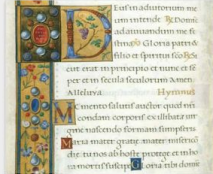 Deus in adiutorium me
um intende ℟ Domine
ad adiuuandum me fes
Gloria patri &
filio et spiritui sco ℟ S
cut erat in principio et nunc & se
per et in secula seculorum Amen
Alleluya Hymnus
Memento salutis auctor quod nri
quondam corporis ex illibata uir
gine nascendo formam sumpseris
Maria mater gratie mater misericor
die tu nos ab hoste protege et in ho
ra mortis suscipe Gloria tibi domine